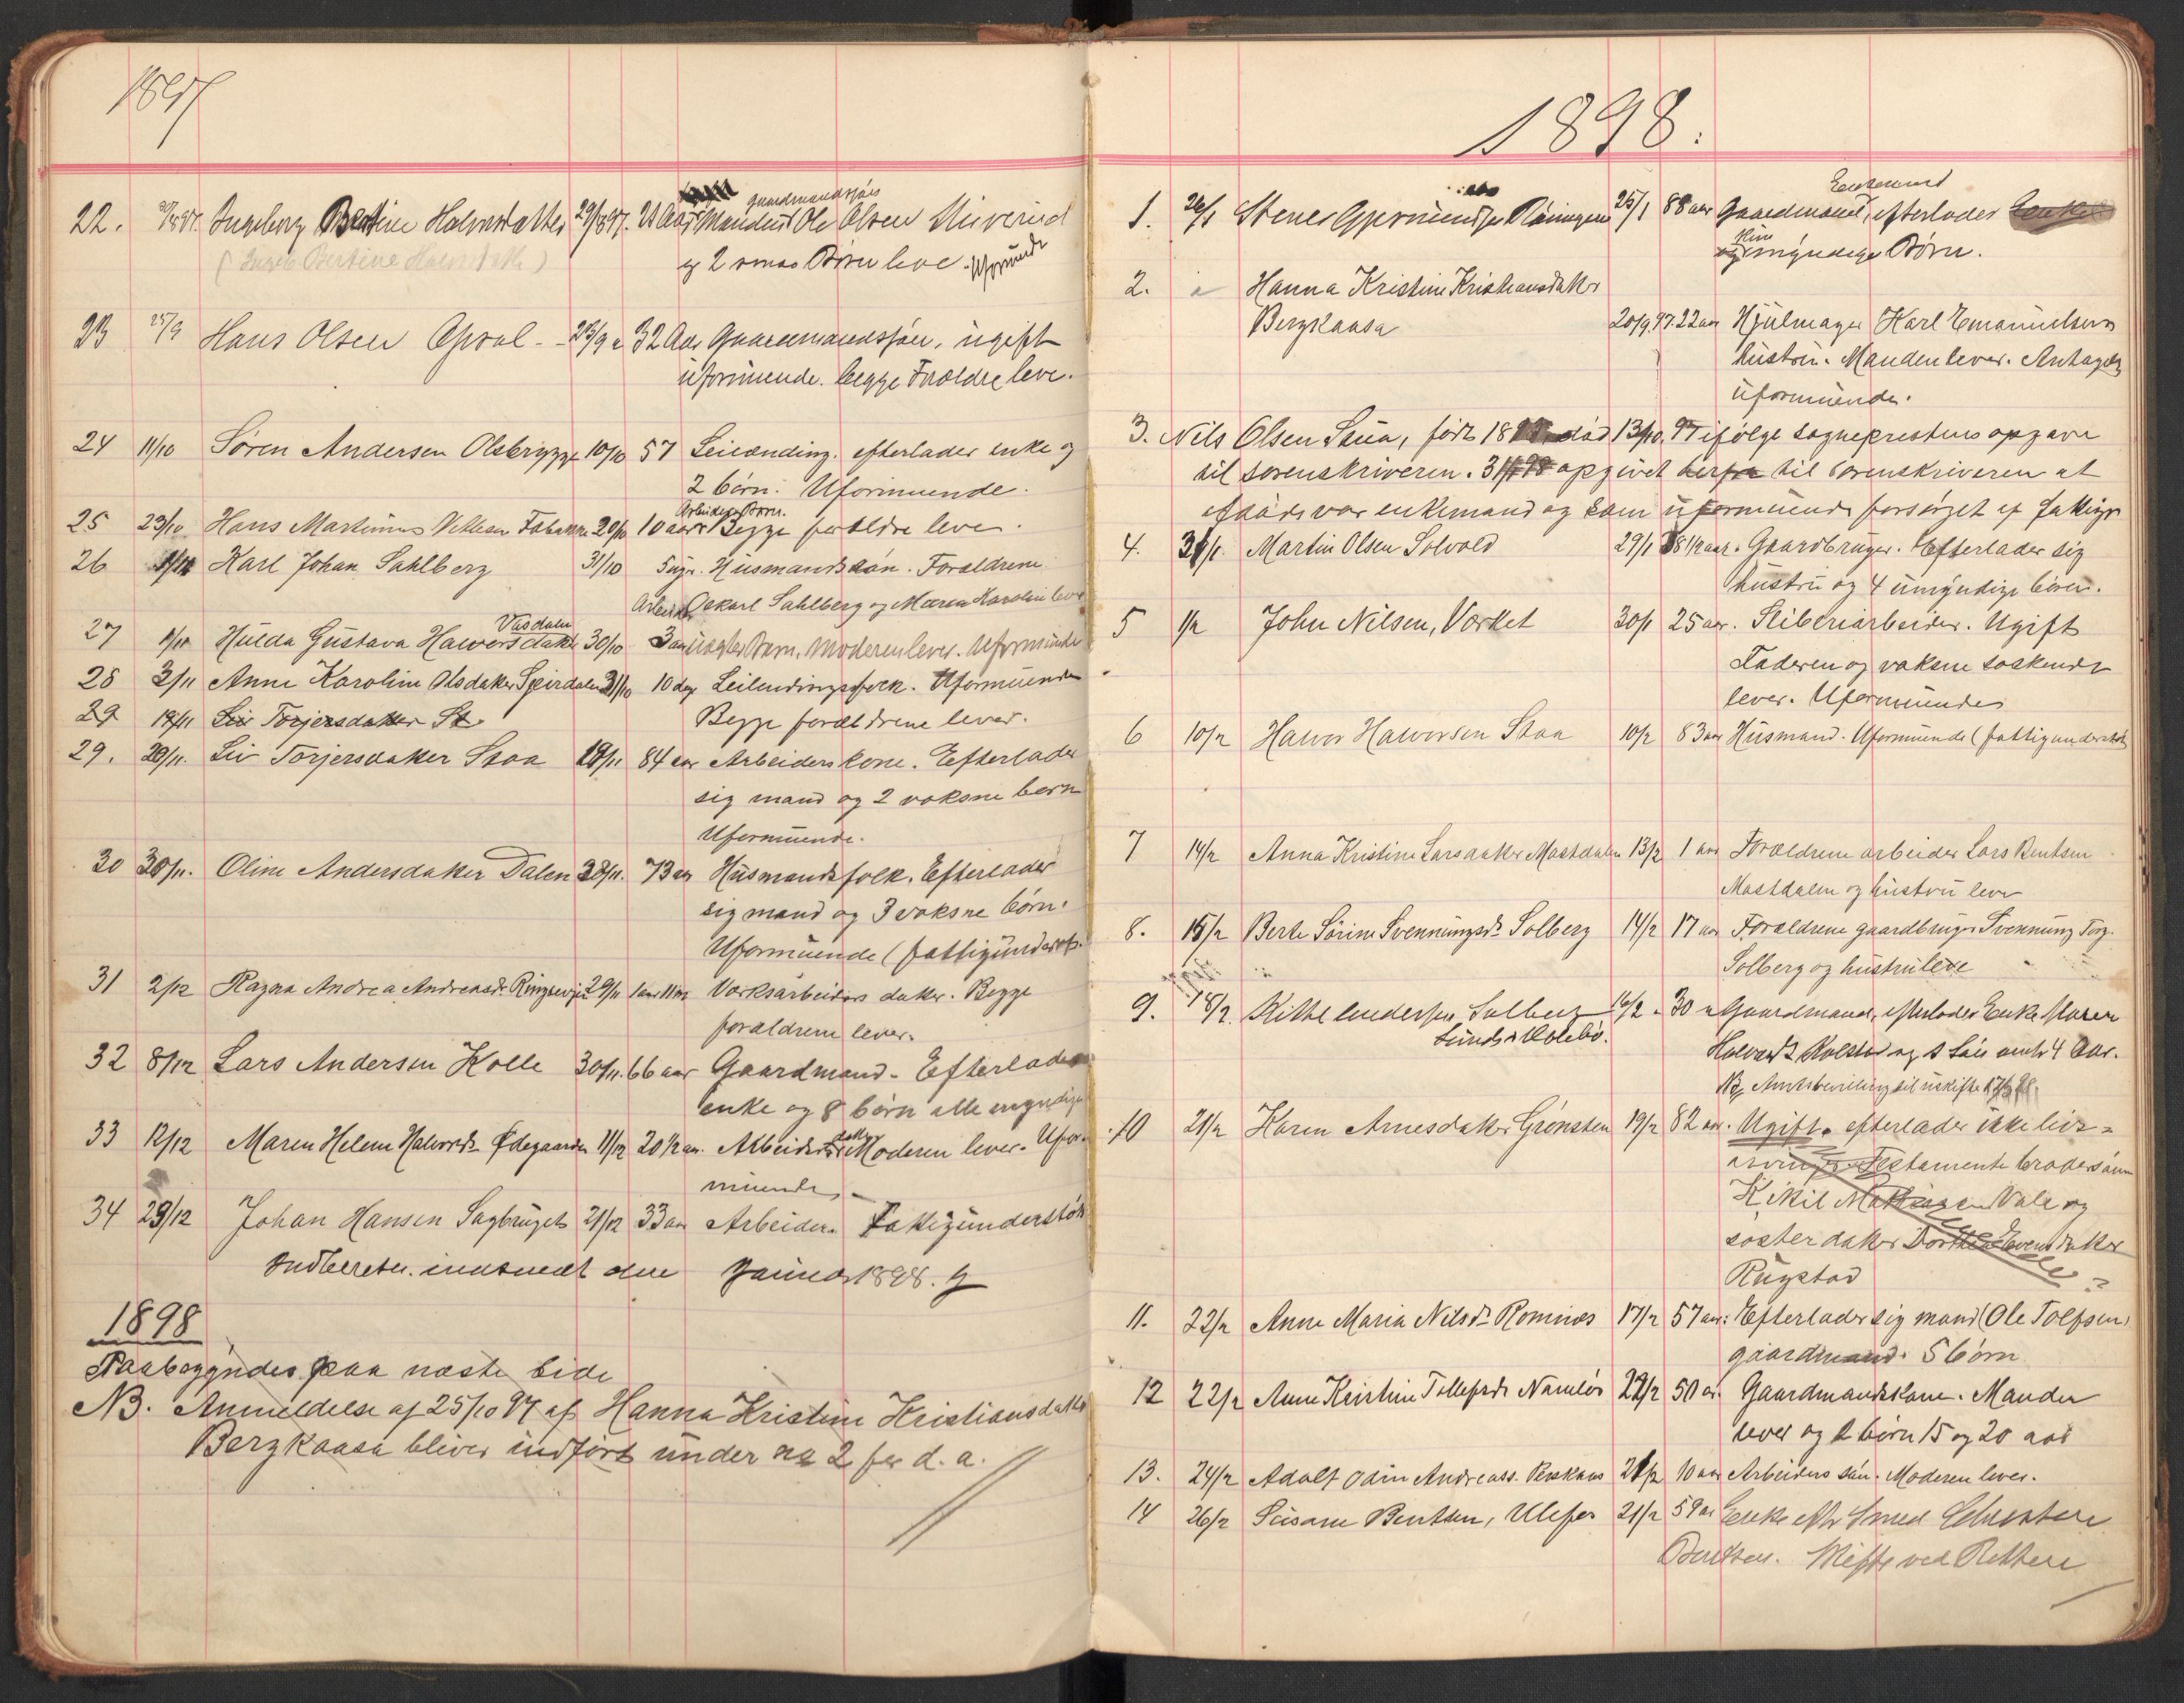 1897
22. Ingeborg Bertine Halvorsdatter 29/8 97. gaardmandssøns
Manden Ole Olsen
(Ingeb Bertine Halvorsdatter)
og 2 smaa Børn leve. Uformuende
23 25/9 Hans Olsen Opsal - 23/9 32 Aar Gaardmandssøn, ugift
uformuende. begge Forældre leve.
24 11/10 Søren Andersen Olsbrygge 10/10 57 Leilænding. efterlader enke og
2 børn. Uformuende.
Arbeiders Børn.
25 23/10 Hans Martinus 20/10 10 aar Begge forældre leve.
26 Karl Johan Sahlberg 31/10 Husmandssøn. Forældrene
Arbeider Oskarl Sahlberg og Maren Karoline leve
Vasdalen
27 1/11 Hulda Gustava Halvorsdatter 30/10 3 aar uægte Barn. Moderen lever. Uformuende
28 3/11 Anne Karoline Olsdatter 31/10 10 dage Leilendingsfolk. Uformuende
29 19/11 Siv Torjersdatter St. Begge forældrene lever.
29. 20/11. Siv Torjersdatter Staa 19/11 84 aar Arbeiderskone. Efterlader
sig mand og 2 voksne børn
Uformuende.
30 30/11. Oline Andersdatter Dalen 28/11. 73 aar Husmandsfolk. Efterlader
sig mand og 3 voksne børn.
Uformuende (fattigunderst.
31 2/12 Ragna Andrea Andreasdr. 29/11 1 aar 11 m Værksarbeiders datter. Begge
forældrene lever.
32 8/12 Lars Andersen Kolle 30/11. 66 aar Gaardmand. Efterlader
enke og 8 børn alle myndige
33 12/12 Maren Helene Halvorsdr. Ødegaarden 11/12 20 1/2 aar. Arbeiders datter Moderen lever. Ufor-
muende
34 23/12 Johan Hansen Sagbruget 21/12 33 aar Arbeider. Fattigunderstøt
Indberetn. indsendt den Januar 1898.
1898
Paabegyndes paa næste side
NB. Anmeldelse af 25/10 97 af Hanna Kristine Kristiansdatter
Bergkaasa bliver indført under no 2 for d. a.
1898.
Enkemand
1. 26/1 Stener Gjermundsen 25/1 88 aar Gaardmand, efterlader Enke
og kun myndige Børn.
2. Hanna Kristine Kristiansdatter
Bergkaasa 20/9.97. 22 aar Hjulmager Karl Emanuelsens
hustru. Manden lever. Antagelig
uformuende.
3. Nils Olsen Saua, født død 13/10. 97 ifølge sogneprestens opgave
til sorenskriveren. opgivet herfra til sorenskriveren at
afdøde var enkemand og som uformuende forsørget af fattigv
4. 31/1. Martin Olsen Solvold 29/1 1/2 aar. Gaardbruger. Efterlader sig
hustru og 4 umyndige børn.
5 1/2 John Nilsen, Værket 30/1 25 aar. Sliberiarbeider. Ugift
Faderen og voksne søskende
lever. Uformuende
6 10/2 Halvor Halvorsen Staa 10/2 83 aar Husmand. Uformuende (fattigunderstøt
7 14/2 Anna Kristine Larsdatter Mastdalen 13/2 1 aar Forældrene arbeider Lars Bentsen
Mastdalen og hustru lever
8. 15/2 Berte Sørine Svennungsdr. Solberg 14/2 17 aar Forældrene gaardbruger Svennung Torg.
Solberg og hustru leve
9. 18/2. Kittel Andersen Solberg 16/2 30 Gaardmand, efterlader Enke Maren
Halvorsd. og 1 Søn omtr 4 Aar.
NB. Amtsbevilling til uskifte
10 21/2 Karen Arnesdatter Grønsten 19/2 82 aar. Ugift. efterlader ikke livs-
arvinger. Testamente brodersønn
Kittil Mathiassen Vale og
søster datter Dorthea Evensdatter
Rugstad
11. 22/2 Anne Maria Nilsdr. Romnæs 17/2 57 aar: Efterlader sig mand (Ole Tolfsen)
gaardmand. 5 børn
12 22/2 Anne Kirstine Tollefsdr. Namløs 22/2 50 aar. Gaardmandskone. Manden
lever og 2 børn 15 og 20 aar
13. 24/2 Adolf Odin Andreass. 21/2 10 aar Arbeiders søn. Moderen lever.
14 26/2 Susane Bentsen, Ulefos 21/2 59 aar Enke efter Smed
Bentsen. Skifte ved Retten